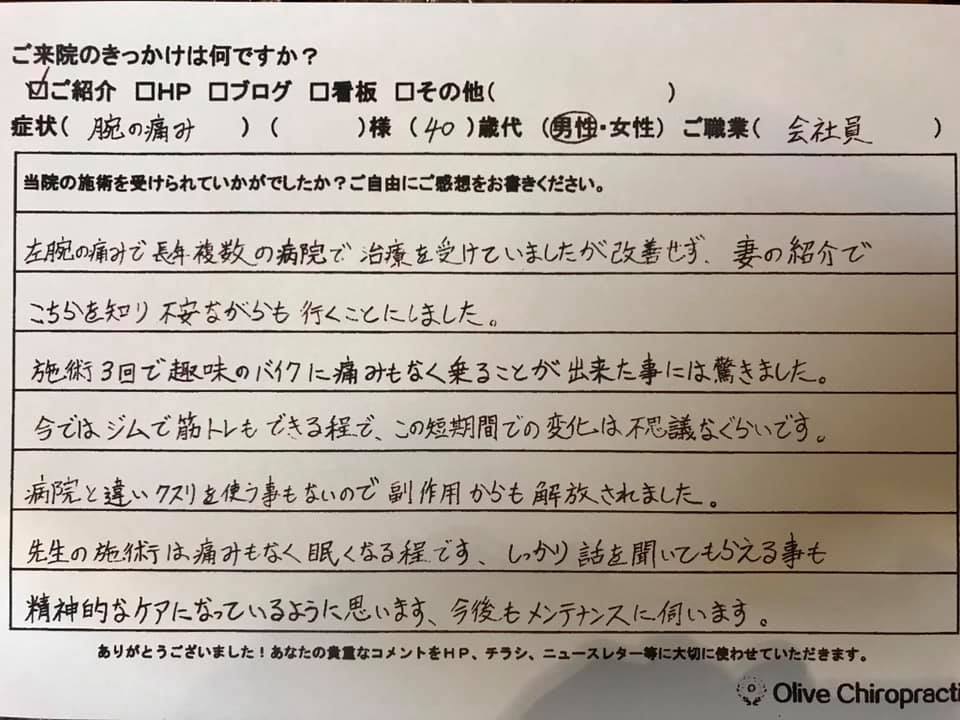 ご来院のきっかけは何ですか？
☑ご紹介 □HP □ブログ □看板 □その他(　　　)
症状( 腕の痛み ) (　　)様 ( 40 )歳代 (男性・女性) ご職業( 会社員 )
当院の施術を受けられていかがでしたか？ご自由にご感想をお書きください。
左腕の痛みで長年複数の病院で治療を受けていましたが改善せず、妻の紹介で
こちらを知り不安ながらも行くことにしました。
施術3回で趣味のバイクに痛みもなく乗ることが出来た事には驚きました。
今ではジムで筋トレもできる程で、この短期間での変化は不思議なぐらいです。
病院と違いクスリを使う事もないので副作用からも解放されました。
先生の施術は痛みもなく眠くなる程です、しっかり話を聞いてもらえる事も
精神的なケアになっているように思います、今後もメンテナンスに伺います。
ありがとうございました！あなたの貴重なコメントをHP、チラシ、ニュースレター等に大切に使わせていただきます。
Olive Chiropracti